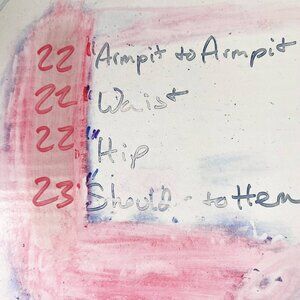 22" Armpit to Armpit
22" Waist
22" Hip
23" Should to Hem